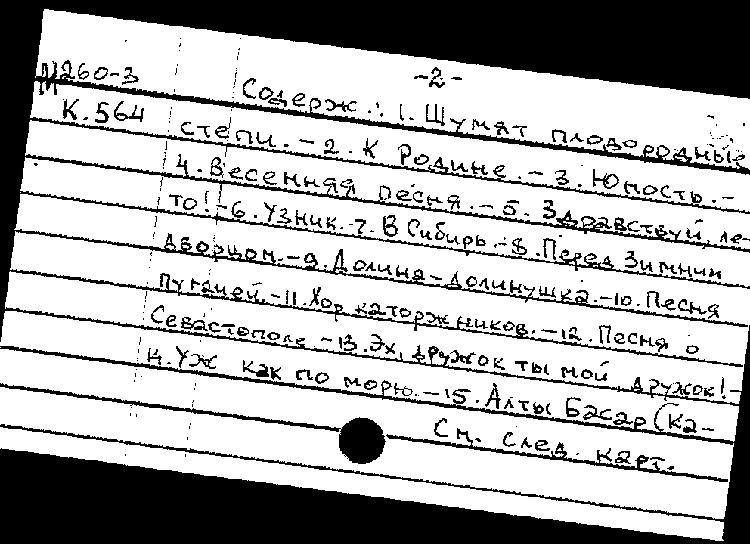 -2-
М260-3
М
К.564
Содерж.: 1. Шумят плодородные
степи. - 2. К Родине. - 3. Юность. -
4. Весенняя песня. - 5. Здравствуй, ле-
то! - 6. Узник. - 7. В Сибирь. - 8. Перед Зимним
дворцом. - 9. Долина-долинушка. - 10. Песня
- 11. Хор каторжников. - 12. Песня о
Севастополе - 13. Эх, дружок ты мой, дружок! -
14. Уж как по морю. - 15. Алты Басар (Ка-
См. след. карт.